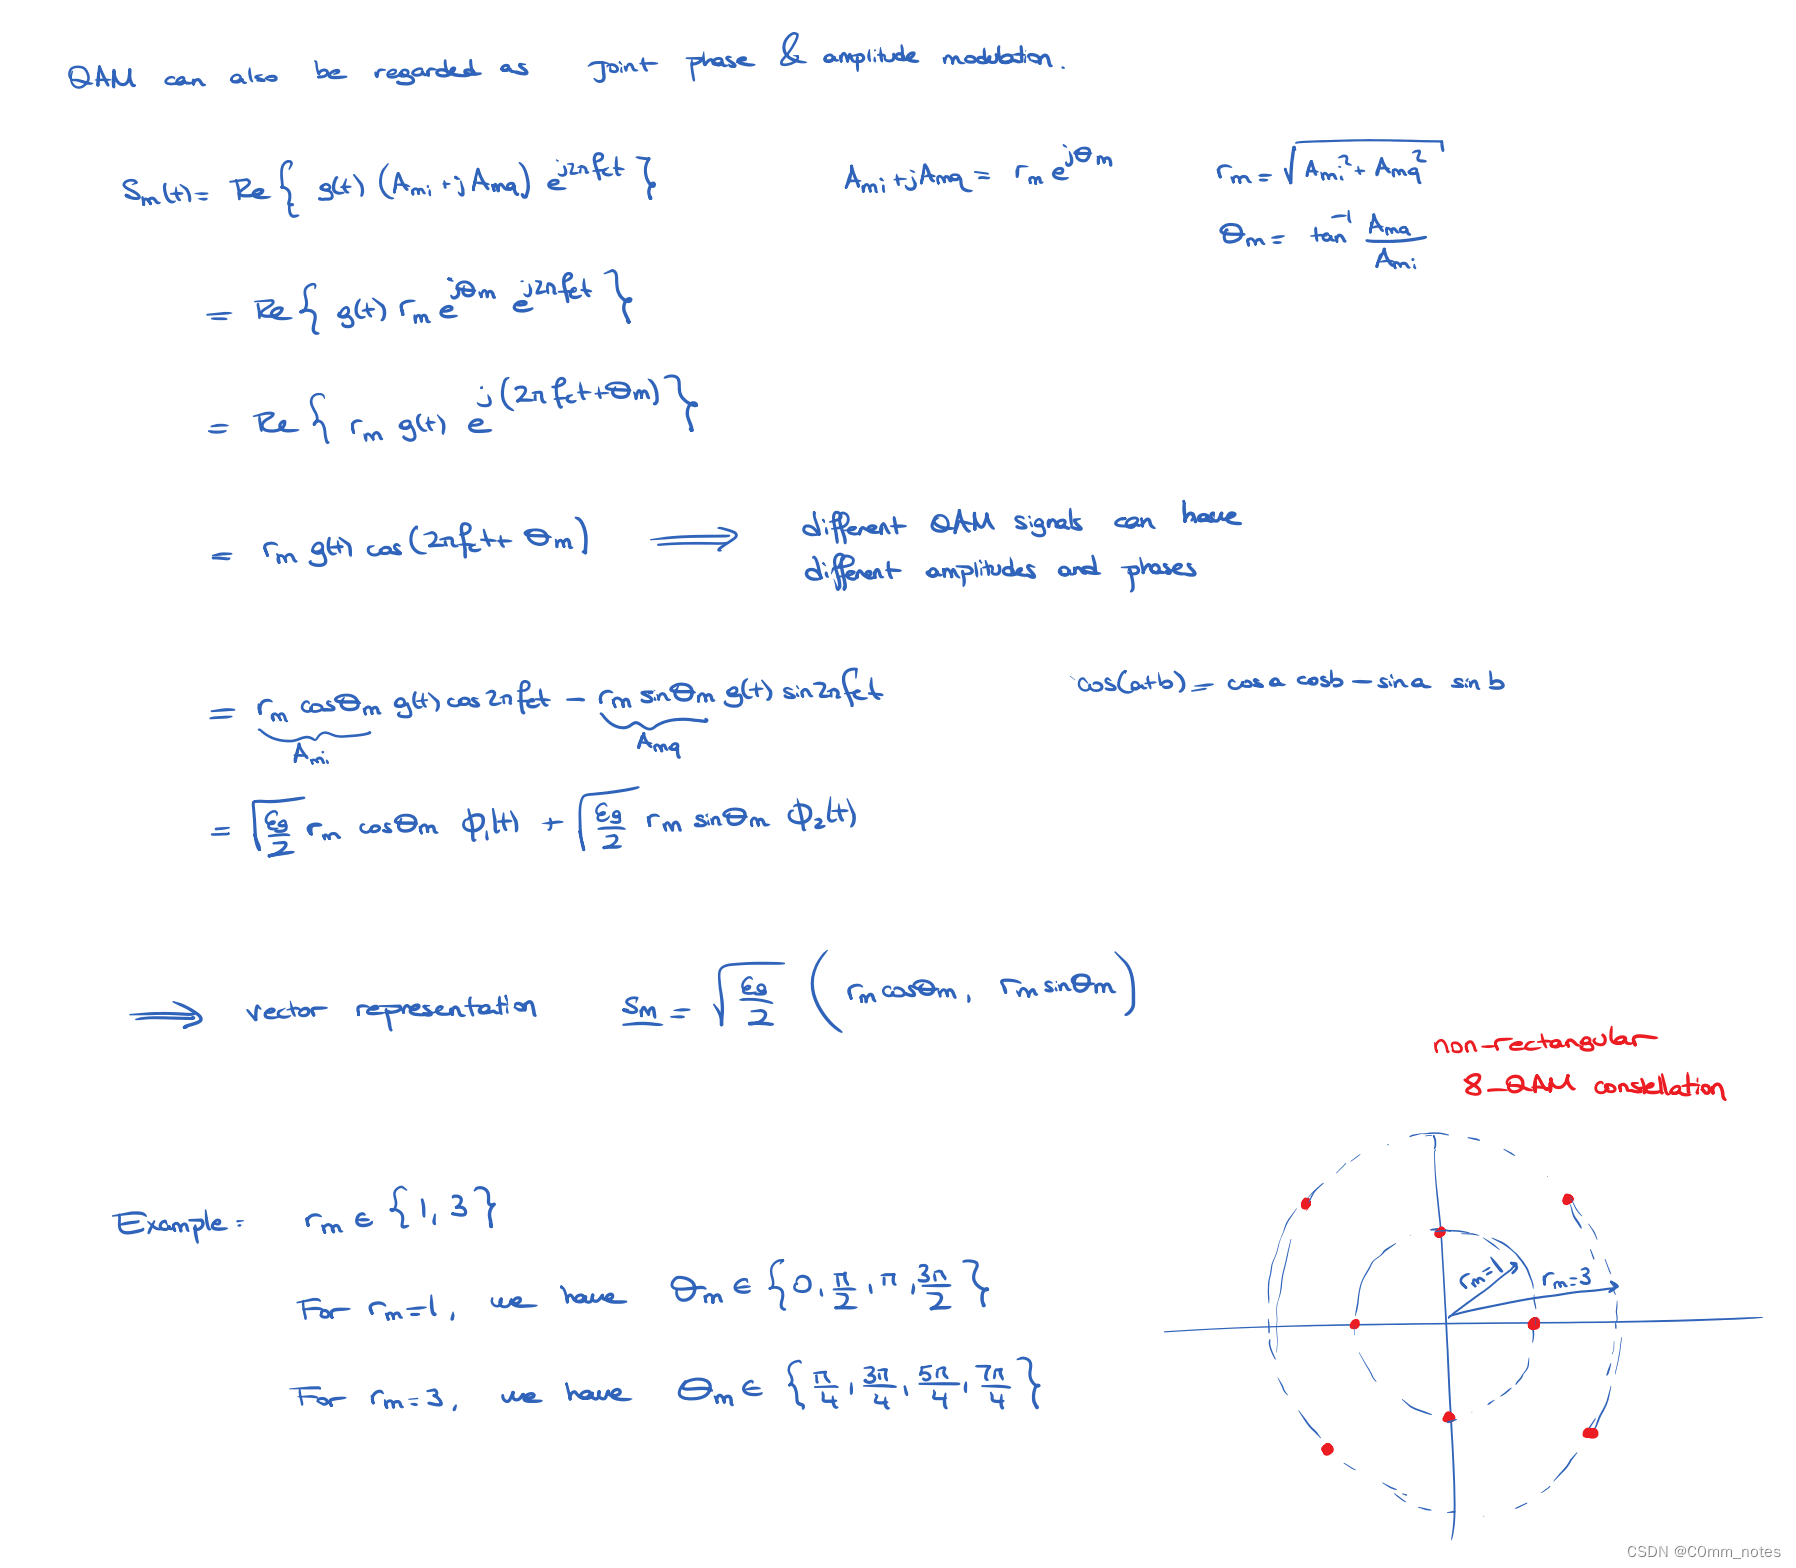 QAM can also be regarded as joint phase & amplitude modulation.
S_m(t) = Re{ g(t) (A_mi + j A_mq) e^{j2πf_ct} }    A_mi + jA_mq = r_m e^{jθ_m}    r_m = √(A_mi² + A_mq²)
θ_m = tan⁻¹ A_mq / A_mi
= Re{ g(t) r_m e^{jθ_m} e^{j2πf_ct} }
= Re{ r_m g(t) e^{j(2πf_ct+θ_m)} }
= r_m g(t) cos(2πf_ct + θ_m) ⟹ different QAM signals can have
different amplitudes and phases
= r_m cosθ_m g(t) cos2πf_ct − r_m sinθ_m g(t) sin2πf_ct    cos(a+b) = cos a cos b − sin a sin b
A_mi    A_mq
= √(ε_g/2) r_m cosθ_m φ_1(t) + √(ε_g/2) r_m sinθ_m φ_2(t)
⟹ vector representation s_m = √(ε_g/2) (r_m cosθ_m, r_m sinθ_m)
non-rectangular
8-QAM constellation
Example: r_m ∈ {1, 3}
For r_m=1, we have θ_m ∈ {0, π/2, π, 3π/2}
For r_m=3, we have θ_m ∈ {π/4, 3π/4, 5π/4, 7π/4}
r_m=1
r_m=3
CSDN @C0mm_notes